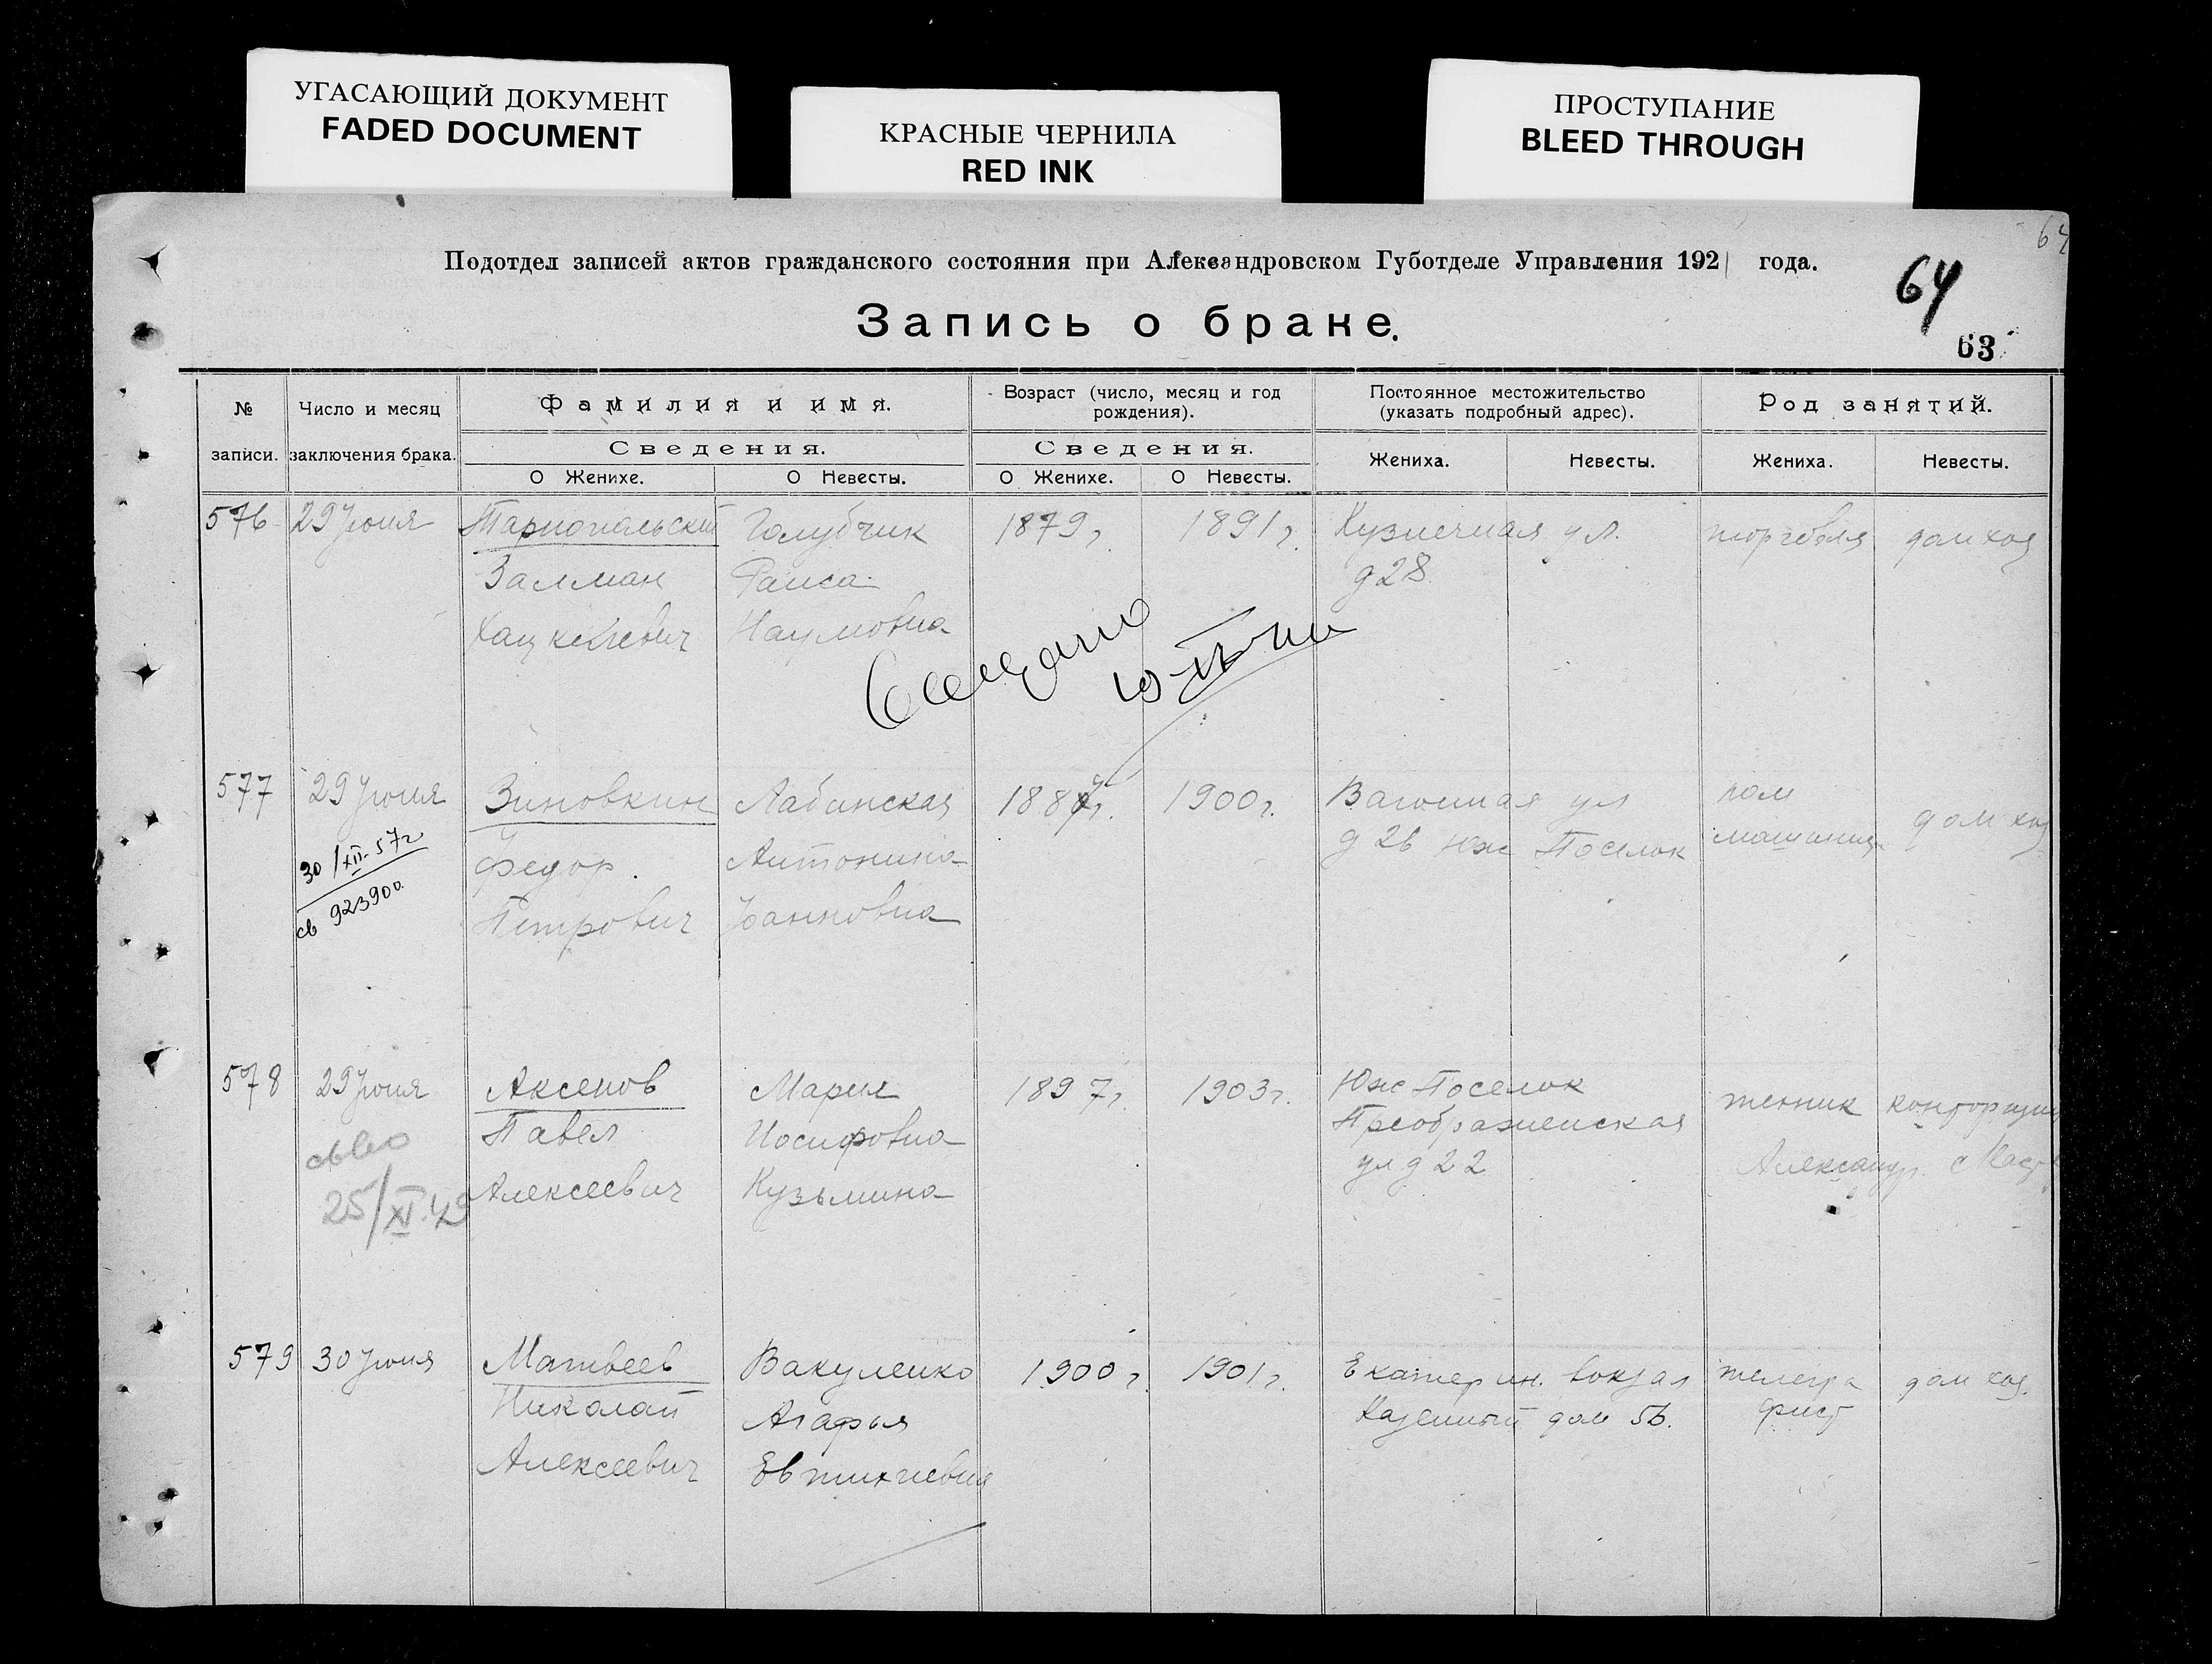 УГАСАЮЩИЙ ДОКУМЕНТ
FADED DOCUMENT
КРАСНЫЕ ЧЕРНИЛА
RED INK
ПРОСТУПАНИЕ
BLEED THROUGH
64
Подотдел записей актов гражданского состояния при Александровском Губотделе Управления 1921 года.
64
Запись о браке.
63
№ записи.
Число и месяц заключения брака.
Фамилия и имя.
Сведения.
О Женихе.
О Невесты.
Возраст (число, месяц и год рождения).
Сведения.
О Женихе.
О Невесты.
Постоянное местожительство
(указать подробный адрес).
Жениха.
Невесты.
Род занятий.
Жениха.
Невесты.
576 29 Июня Тарнопольский Голубчик 1879 г. 1891 г. Кузнечная ул. торговля дом хоз
Залман Раиса д 28.
Хацкелевич Наумовна
577 29 Июня Зиновкин Лабинская 1900 г. Вагонная ул пом дом хоз
д 26 Юж Поселок машинис
30/XII-57г Федор Антонина
св 923900
Петрович Иоанновна
578 29 Июня Аксенов Мария 1897 г. 1903 г. Юж Поселок техник конторщица
Павел Иосифовна Преображенская
ул д 22 Александр. Маст
25/XI.49 Алексеевич Кузьмина
579 30 Июня Матвеев Вакуленко 1900 г. 1901 г. Екатерин. вокзал телегра дом хоз.
Николай Агафья Казенный дом 56. фист
Алексеевич Евтихиевна